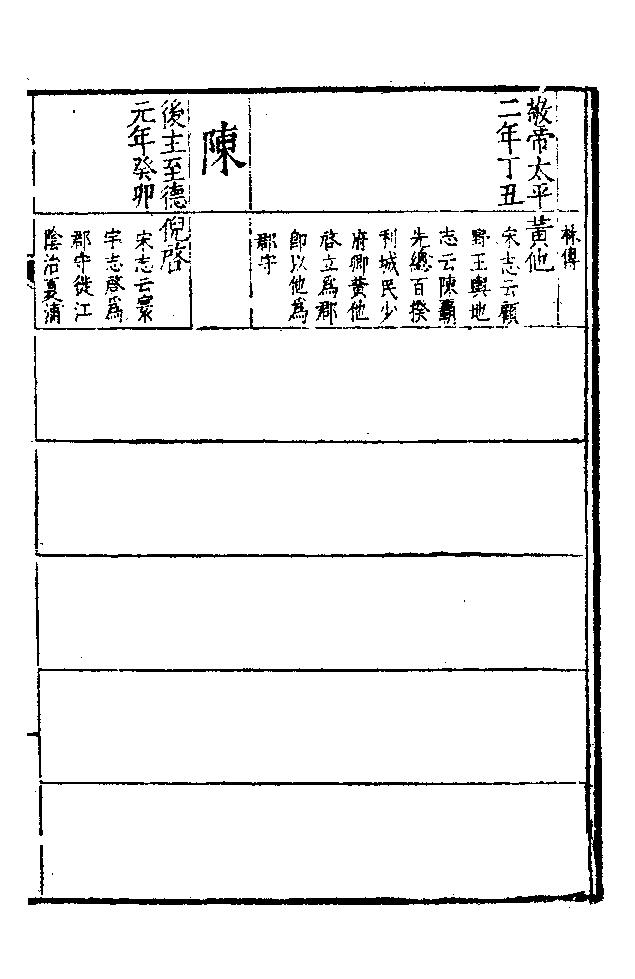 林傳
敬帝太平黃他
二年丁丑
宋志云顧
野王輿地
志云陳霸
先總百揆
利城民少
府卿黄他
啓立爲郡
即以他爲
郡守
陳
後主至德倪啓
元年癸卯
宋志云寰
宇志啓爲
郡守徙江
陰治夏浦